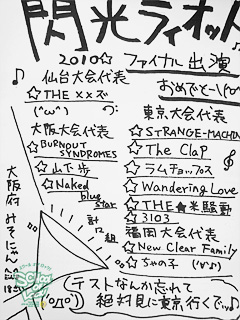 閃光ライオット
2010☆ ファイナル出演
おめでとー\(^o^
仙台大会代表
☆THE ××ズ
(^ω^)
大阪大会代表
☆BURNOUT
SYNDROMES
☆山下歩
☆Naked
blue
star
計12組
東京大会代表
☆STRANGE-MACHIN
☆The Clap
☆ラムチョップス
☆Wandering Love
☆THE★米騒動
☆3103
福岡大会代表
☆New Clear Family
☆ちゃの子 (^▽^)
大阪府 みそにゃん
テストなんか忘れて
絶対見に東京行くでっ♪